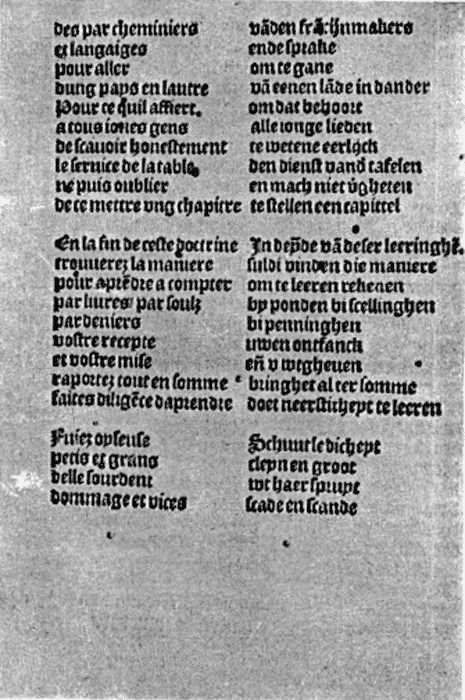 des par cheminiers
et langaiges
pour aller
dung pays en lautre
Pour ce q̄uil affiert.
a tous iones gens
de scauoir honestement
le seruice de la table
ne puis oublier
de ce mettre vng chapitre
En la fin de ceste doctrine
trouuerez la maniere
pour aprēdre a compter
par liures/ par soulz
par deniers
vostre recepte
et vostre mise
raportez tout en somme
faites diligēce daprendre
Fuiez oyseuse
petis et grans
delle sourdent
dommage et vices
vāden
ende sprake
om te gane
vā eenen lāde in dander
om dat behoort
alle ionge lieden
te wetene eerlijck
den dienst vand tafelen
en mach niet v̄gheten
te stellen een capittel
In vā deser leeringhē.
suldi vinden die maniere
om te leeren rekenen
by ponden bi scellinghen
bi penninghen
uwen ontfanck
eñ v wtgheuen
bringhet al ter somme
doet neerstichept te leeren
Schuwt ledichept
cleyn en groot
wt haer spruyt
scade en scande